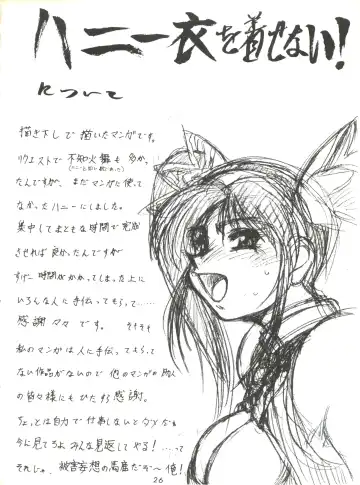 ハニー衣を着せない!
について
描き下しで描いたマンガです。
リクエストで不知火舞も多か、
たんですが、まだマンガに使って
なかったハニーにしました。
集中してまともな時間で完成
させれば良かったんですが
すげー時間がかかってしまった上に
いろんな人に手伝ってもらって……
感謝々々です。
私のマンガは人に手伝ってもらって
ない作品がないので他のマンガの
の皆々様にもひたすら感謝。
ちょっとは自力で仕事しないとダメだな
今に見てろよみんな見返してやる!……って
それじゃ、被害妄想の高慶だぞ〜俺!
26